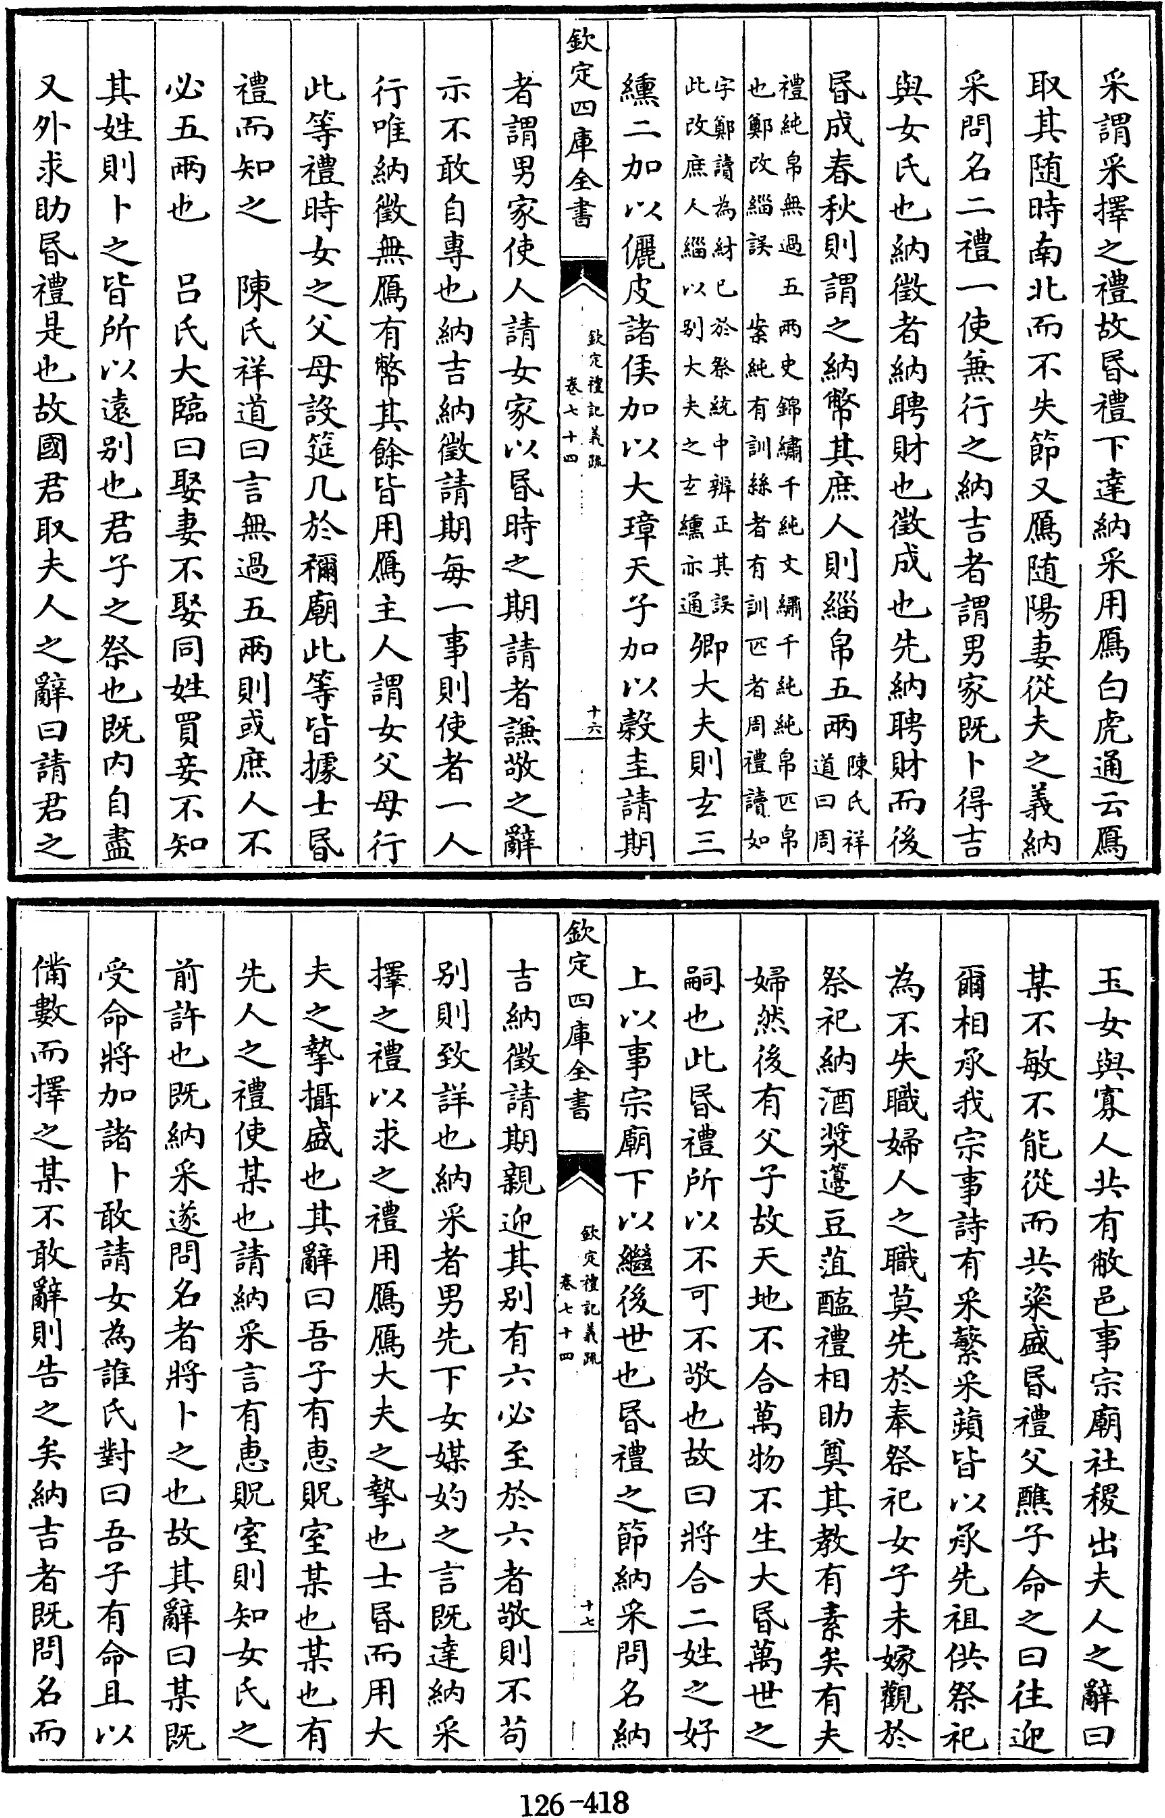 采謂采擇之禮故昏禮下達納采用鴈白虎通云鴈
取其随時南北而不失節又鴈随陽妻從夫之義納
采問名二禮一使兼行之納吉者謂男家既卜得吉
與女氏也納徴者納聘財也徴成也先納聘財而後
昏成春秋則謂之納幣其庶人則緇帛五兩陳氏祥
道曰周
禮純帛無過五兩史錦繡千純文繡千純純帛匹帛
也鄭改緇誤　案純有訓絲者有訓匹者周禮讀如
字鄭讀為財已於祭統中辨正其誤
此改庶人緇以别大夫之玄纁亦通卿大夫則玄三
纁二加以儷皮諸侯加以大璋天子加以榖圭請期
欽定四庫全書
欽定禮記義疏
卷七十四
十六
者謂男家使人請女家以昏時之期請者謙敬之辭
示不敢自專也納吉納徴請期每一事則使者一人
行唯納徴無鴈有幣其餘皆用鴈主人謂女父母行
此等禮時女之父母設筵几於禰廟此等皆據士昏
禮而知之　陳氏祥道曰言無過五兩則或庶人不
必五兩也　呂氏大臨曰娶妻不娶同姓買妾不知
其姓則卜之皆所以遠别也君子之祭也既内自盡
又外求助昏禮是也故國君取夫人之辭曰請君之
玉女與寡人共有敝邑事宗廟社稷出夫人之辭曰
某不敏不能從而共粢盛昏禮父醮子命之曰往迎
爾相承我宗事詩有采蘩采蘋皆以承先祖供祭祀
為不失職婦人之職莫先於奉祭祀女子未嫁觀於
祭祀納酒漿籩豆菹醢禮相助奠其教有素矣有夫
婦然後有父子故天地不合萬物不生大昏萬世之
嗣也此昏禮所以不可不敬也故曰將合二姓之好
上以事宗廟下以繼後世也昏禮之節納采問名納
欽定四庫全書
欽定禮記義疏
卷七十四
十七
吉納徴請期親迎其别有六必至於六者敬則不苟
别則致詳也納采者男先下女媒妁之言既達納采
擇之禮以求之禮用鴈鴈大夫之摯也士昏而用大
夫之摯攝盛也其辭曰吾子有惠貺室某也某也有
先人之禮使某也請納采言有惠貺室則知女氏之
前許也既納采遂問名者將卜之也故其辭曰某既
受命將加諸卜敢請女為誰氏對曰吾子有命且以
備數而擇之某不敢辭則告之矣納吉者既問名而
126-418